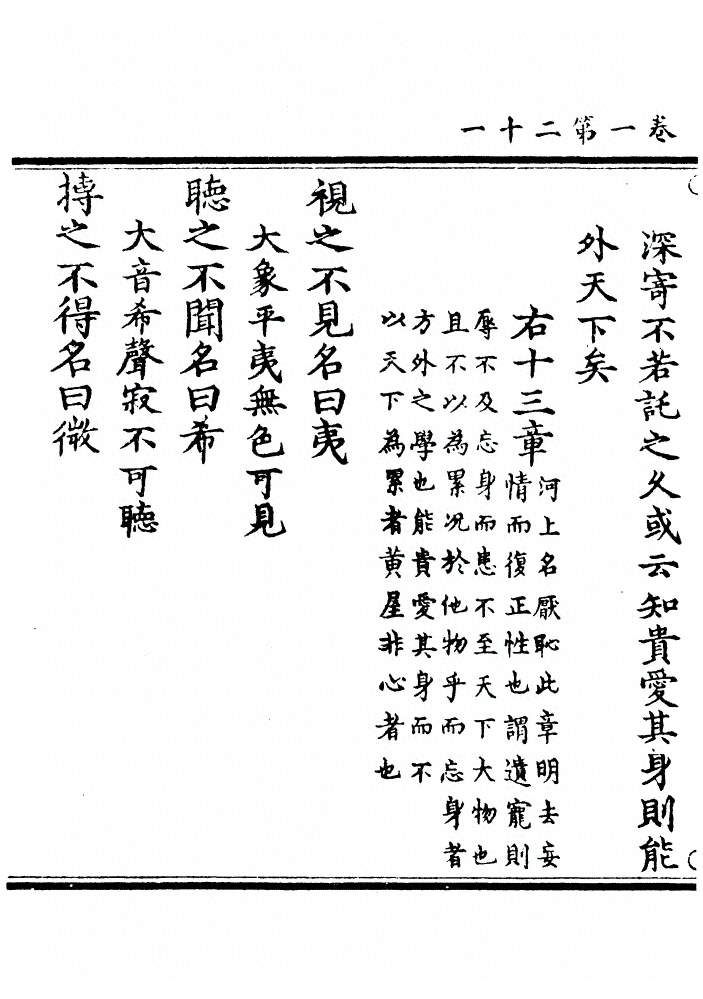 卷一第二十一
深寄不若託之久或云知貴愛其身則能
外天下矣
右十三章河上名厭恥此章明去妄
情而復正性也謂遺寵則
辱不及忘身而患不至天下大物也
且不以為累况於他物乎而忘身者
方外之學也能貴愛其身而不
以天下為累者黄屋非心者也
視之不見名曰夷
大象平夷無色可見
聽之不聞名曰希
大音希聲寂不可聽
搏之不得名曰微